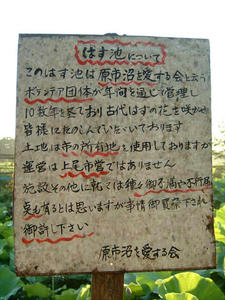 はす池について
このはす池は原市沼を愛する会と云う
ボランテア団体が年間を通じて管理し
10数年を経ており古代はすの花を咲かせ
皆様にたのしんでいただいております
土地は市の所有地を使用しておりますが
運営は上尾市営ではありません
施設その他に就ては種々御不満や不行届
の点も有るとは思いますが事情御賢察下され
御許し下さい
原市沼を愛する会